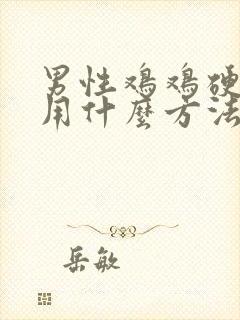 男性鸡鸡硬
用什麼方法
岳敏